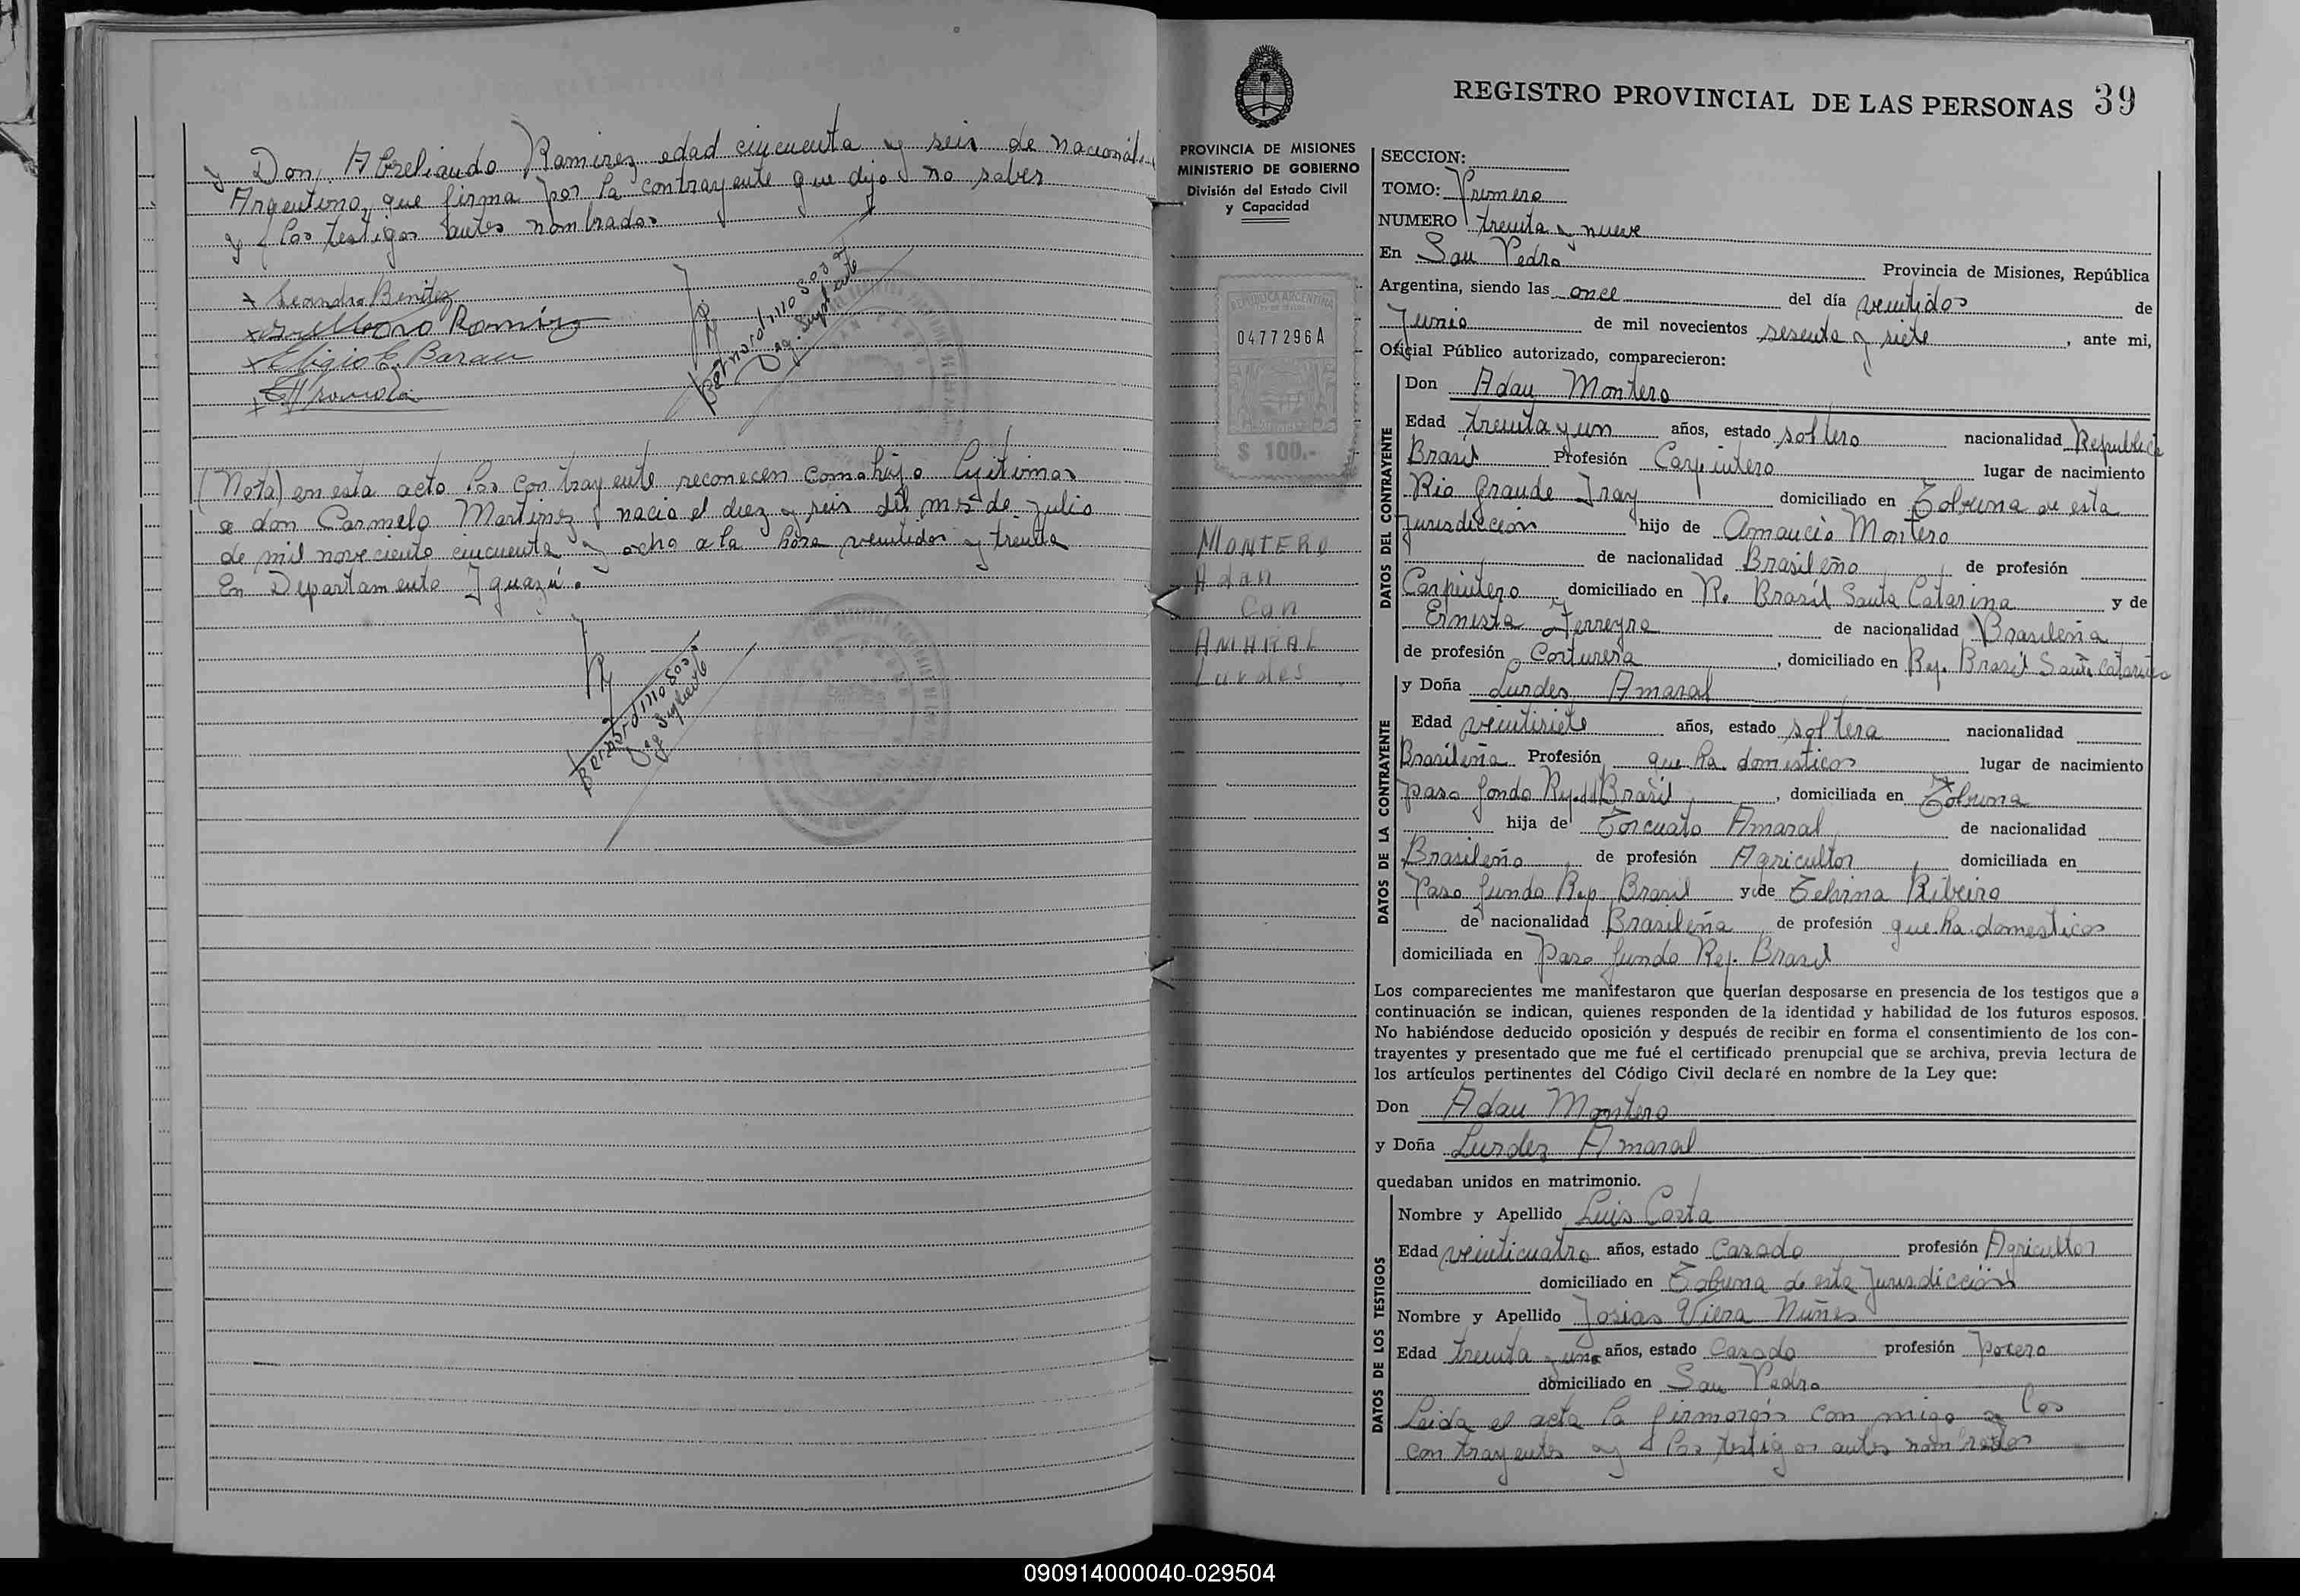 y Don, Abreliando Ramirez edad cincuenta y seis de nacionali
Argentino, que firma por la contrayente que dijo no saber
y los testigos antes nombrados
Leandro Benitez
Ramirez
Eligio E. Baran
(Nota) en esta acto los contrayente reconecen como hijo lijitimos
a don Carmelo Martinez nacio el diez y seis del mes de julio
de mil noveciento cincuenta y ocho a la hora veintidos y treinta
En Departamento Iguazú.
REGISTRO PROVINCIAL DE LAS PERSONAS 39
PROVINCIA DE MISIONES
MINISTERIO DE GOBIERNO
División del Estado Civil
y Capacidad
REPUBLICA ARGENTINA
0477296A
$ 100.-
MONTERO
Adan
Con
AMARAL
Lurdes
SECCION:
TOMO: Primero
NUMERO treinta y nueve
En San Pedro Provincia de Misiones, República
Argentina, siendo las once del día veintidos de
Junio de mil novecientos sesenta y siete, ante mi,
Oficial Público autorizado, comparecieron:
DATOS DEL CONTRAYENTE
Don Adan Montero
Edad treinta y un años, estado soltero nacionalidad Republica
Brasil Profesión Carpintero lugar de nacimiento
Rio Grande Iray domiciliado en Tobuna de esta
Jurisdiccion hijo de Amaucio Montero
de nacionalidad Brasileño de profesión
Carpintero domiciliado en R. Brasil Santa Catarina y de
Ernesta Ferreyra de nacionalidad Brasileña
de profesión Costurera, domiciliado en Rep. Brasil Santa Catarina
DATOS DE LA CONTRAYENTE
y Doña Lurdes Amaral
Edad veintisiete años, estado soltera nacionalidad
Brasileña Profesión que ha. domesticos lugar de nacimiento
Paso fondo Rep. Brasil, domiciliada en Tobuna
hija de Torcuato Amaral de nacionalidad
Brasileño de profesión Agricultor domiciliada en
Paso fundo Rep. Brasil y de Telvina Ribeiro
de nacionalidad Brasileña de profesión que. ha. domesticos
domiciliada en Paso fundo Rep. Brasil
Los comparecientes me manifestaron que querían desposarse en presencia de los testigos que a
continuación se indican, quienes responden de la identidad y habilidad de los futuros esposos.
No habiéndose deducido oposición y después de recibir en forma el consentimiento de los con-
trayentes y presentado que me fué el certificado prenupcial que se archiva, previa lectura de
los artículos pertinentes del Código Civil declaré en nombre de la Ley que:
Don Adan Montero
y Doña Lurdez Amaral
quedaban unidos en matrimonio.
DATOS DE LOS TESTIGOS
Nombre y Apellido Luis Costa
Edad veinticuatro años, estado Casado profesión Agricultor
domiciliado en Tobuna de esta Jurisdiccion
Nombre y Apellido Josias Viera Nuñes
Edad treinta y uno años, estado Casado profesión
domiciliado en San Pedro
Leida el acta la firmaron con migo y los
contrayentes y los testigos antes nombrados
090914000040-029504